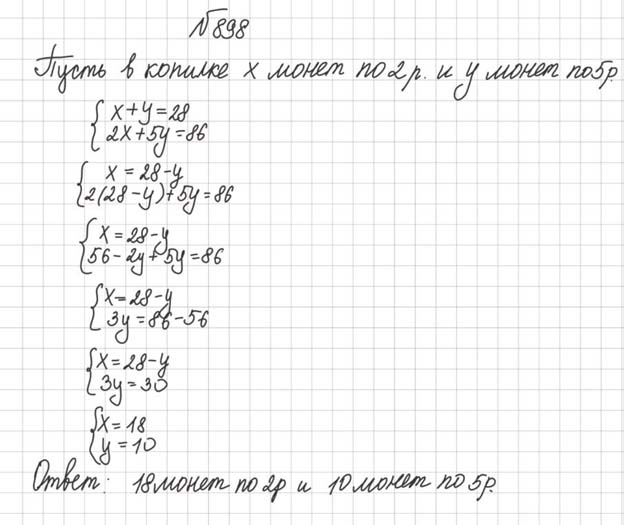 №898
Пусть в копилке x монет по 2 р. и y монет по 5 р
x + y = 28
2x + 5y = 86
x = 28 - y
2(28 - y) + 5y = 86
x = 28 - y
56 - 2y + 5y = 86
x = 28 - y
3y = 86 - 56
x = 28 - y
3y = 30
x = 18
y = 10
Ответ: 18 монет по 2р и 10 монет по 5р.